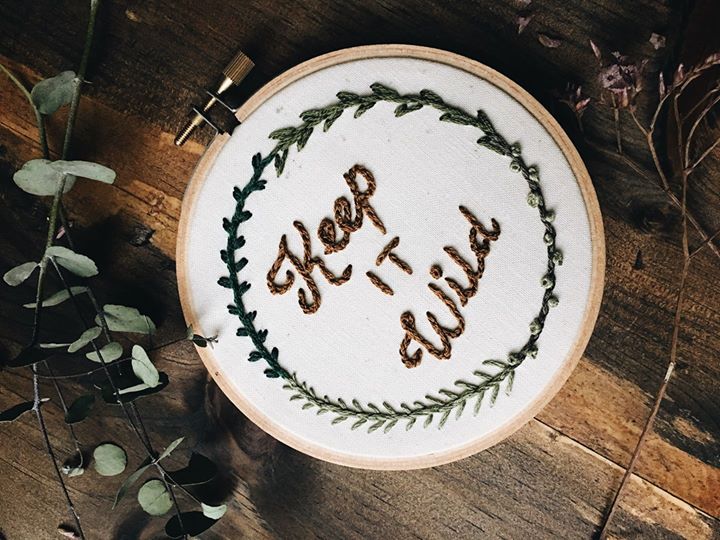 Keep
IT
Wild